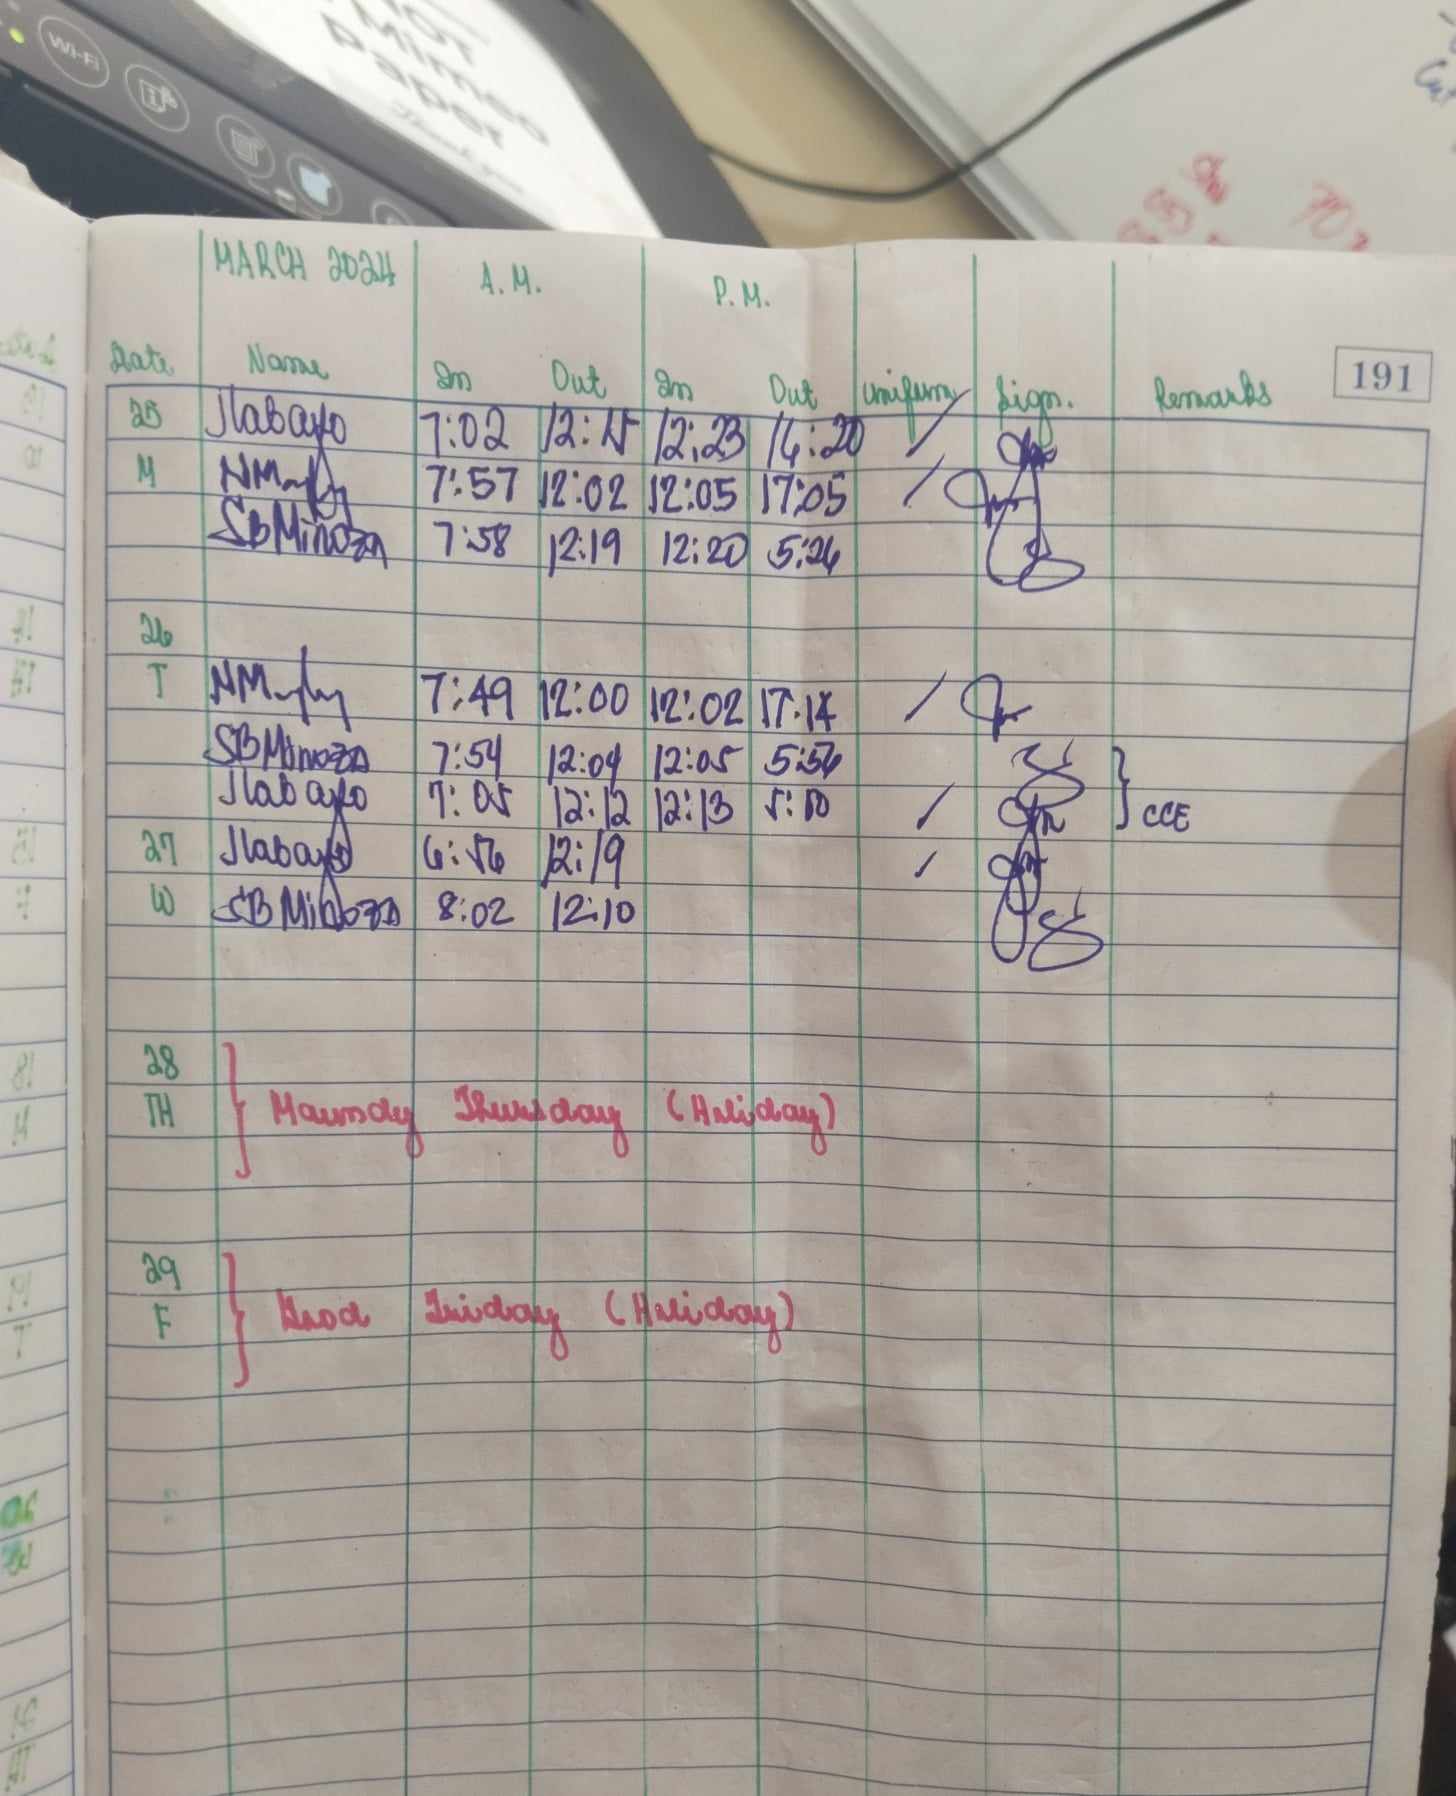 Wi-Fi
Not
Mimeo
Paper
Thank you
70
MARCH 2024 A.M. P.M.
191
Date Name In Out In Out Uniform Sign. Remarks
25 Jlabayo 7:02 12:15 12:23 16:20 /
M 7:57 12:02 12:05 17:05 /
SBMinoza 7:58 12:19 12:20 5:26
26
T 7:49 12:00 12:02 17:14 /
SBMinoza 7:54 12:04 12:05 5:56
Jlabayo 7:05 12:12 12:13 5:10 / } CCE
27 Jlabayo 6:56 12:19 /
W SBMinoza 8:02 12:10
28
TH Maunday Thursday (Holiday)
29
F Good Friday (Holiday)